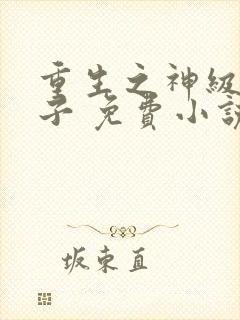 重生之神级
子 免費小說
坂東直